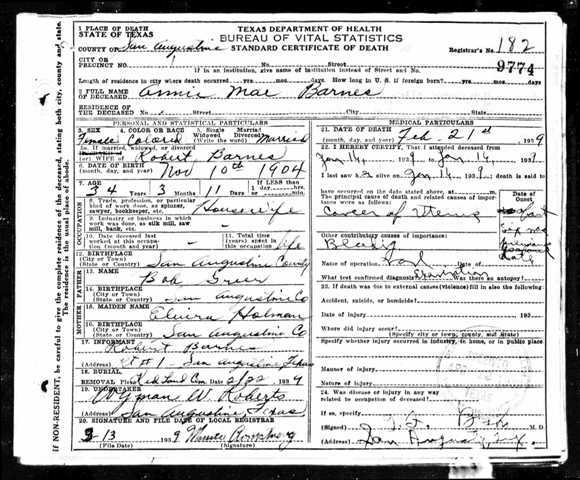 TEXAS DEPARTMENT OF HEALTH
BUREAU OF VITAL STATISTICS
STANDARD CERTIFICATE OF DEATH
1 PLACE OF DEATH
STATE OF TEXAS
COUNTY OF San Augustine
Registrar's No. 182
CITY OR
PRECINCT NO. 1 No. Street
9774
If in an institution, give name of institution instead of Street and No.
Length of residence in city where death occurred yrs. mos. days. How long in U. S. if foreign born? yrs. mos. days
2 FULL NAME
OF DECEASED Annie Mae Barnes
RESIDENCE OF
THE DECEASED No. Street City State
PERSONAL AND STATISTICAL PARTICULARS
3. SEX 4. COLOR OR RACE 5. Single Married
Widowed Divorced
(Write the word)
Female Colored Married
5a. If married, widowed, or divorced
(or) WIFE OF Robert Barnes
6. DATE OF BIRTH
(month, day, and year) Nov 10th 1904
7. AGE If LESS than
1 day
hrs.
min.
34 3 Months 11 Days
OCCUPATION
8. Trade, profession, or particular
kind of work done, as spinner,
sawyer, bookkeeper, etc. Housewife
9. Industry or business in which
work was done, as silk mill, saw
mill, bank, etc.
10. Date deceased last
worked at this occupation
(month and year)
11. Total time (years)
spent in this
occupation life
12. BIRTHPLACE
(City or Town)
(State or County) San Augustine County
FATHER
13. NAME Bob Greer
14. BIRTHPLACE
(City or Town)
(State or County) San Augustine Co
MOTHER
15. MAIDEN NAME Elvira Holman
16. BIRTHPLACE
(City or Town)
(State or County) San Augustine Co
17 INFORMANT Robert Barnes
(Address) Rt # 1 San Augustine Texas
18. BURIAL
REMOVAL Place Red Land Cem Date 2/22 1939
19. UNDERTAKER Wyman W. Roberts
(Address) San Augustine, Texas
20. SIGNATURE AND FILE DATE OF LOCAL REGISTRAR
3-13 1939
(File Date) (Signature)
MEDICAL PARTICULARS
21. DATE OF DEATH
(month, day, and year) Feb 21st, 1939
22. I HEREBY CERTIFY, That I attended deceased from
Jan 14 1939 to Jan 14, 1939
I last saw her alive on Jan 14 1939; death is said
to have occurred on the date stated above, at m.
The principal cause of death and related causes of importance were as follows:
Date of
Onset
Cancer of Uterus
Other contributory causes of importance:
Name of operation Date
What test confirmed diagnosis? Examination Was there an autopsy?
23. If death was due to external causes (violence) fill in also the following:
Accident, suicide, or homicide?
Date of injury 193
Where did injury occur?
(Specify city or town, county, and State)
Specify whether injury occurred in industry, in home, or in public place
Manner of injury
Nature of injury
24. Was disease or injury in any way
related to occupation of deceased?
If so, specify
(Signed) M. D.
(Address) San Augustine, Tex.
If NON-RESIDENT, be careful to give the complete residence of the deceased, stating both city, county and state.
The residence is the usual place of abode.